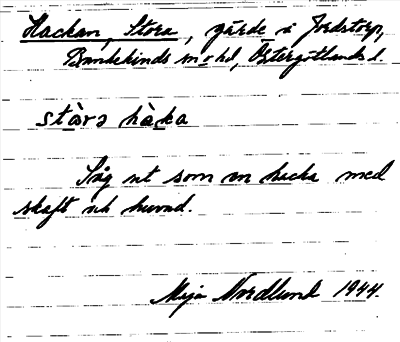 Hackan, Stora, gärde i Jordstorp,
Bankekinds sn o hd, Östergötlands l.
stòra hàka
Såg ut som en hacka med
skaft och huvud.
Maja Nordlund 1944.